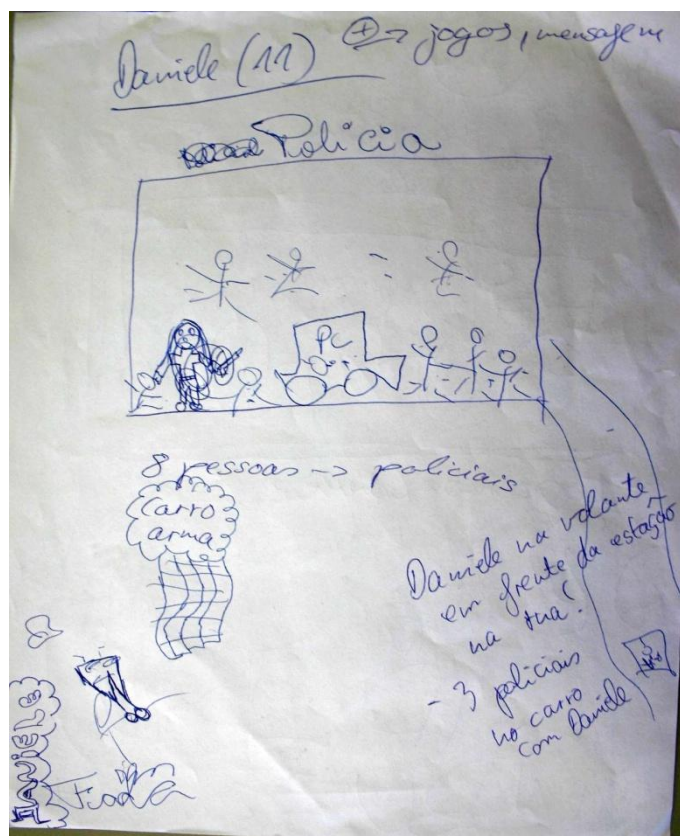 Daniele (11) + → jogos, mensagem
Policia
PC
8 pessoas -> policiais
Carro
arma
Daniele na volante
em frente da estação
na rua!
- 3 policiais
no carro
com Daniele
DANIELE